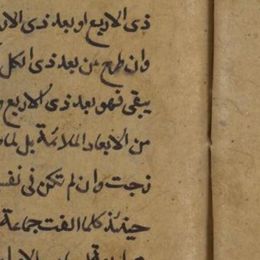 ذى الاربع او بعد ذى الار
وان طرح من بعد ذى الكل
يبقى فهو بعد ذى الاربع و
من الابعاد الملائمة بل لما
نجت وان لم تكن فى نفس
حينئذ كلما الفت جماعة